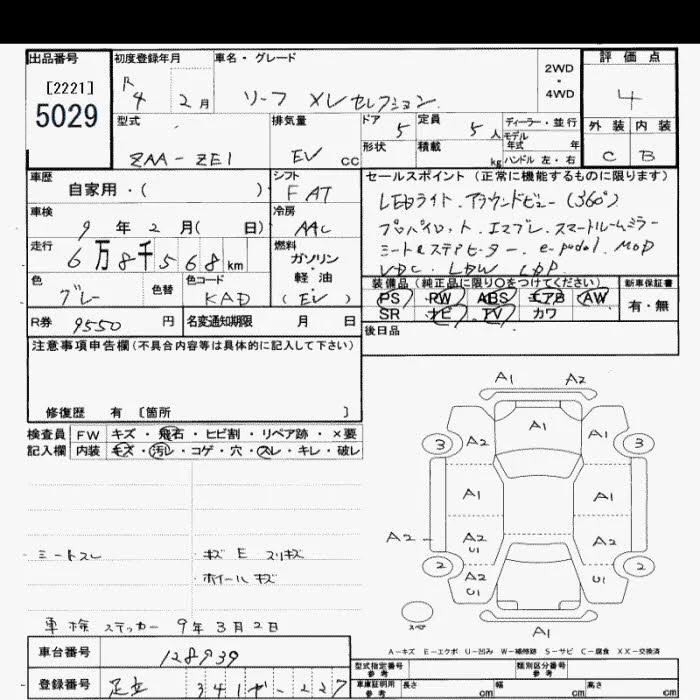 出品番号 初度登録年月 車名・グレード 2WD ・ 4WD 評価点
[2221] R 4 2月 リーフ XVセレクション 4
5029 型式 排気量 ドア 5 定員 5人 ディーラー・並行 外装 内装
ZAA-ZE1 EV cc 形状 積載 kg モデル年式 年 ハンドル 左・右 C B
車歴 自家用・( ) シフト FAT セールスポイント (正常に機能するものに限ります)
車検 9年 2月( 日) 冷房 AAC LEDライト.アラウンドビュー(360°)
走行 6万8千568km 燃料 ガソリン・軽油 (EV) プロパイロット.エマブレ.スマートルームミラー
シート&ステアヒーター.e-pedal.MOD
VDC.LDW.LDP.
色 グレー 色替 色コード KAD 装備品(純正品に限り○をつけてください) 新車保証書
PS PW ABS エアB AW 有・無
SR ナビ TV カワ
R券 9550円 名変通知期限 月 日 後日品
注意事項申告欄(不具合内容等は具体的に記入して下さい)
修復歴 有 〔箇所 〕
検査員 FW キズ・飛石・ヒビ割・リペア跡・×要
記入欄 内装 キズ・汚レ・コゲ・穴・スレ・キレ・破レ
・シートスレ ・キズ E スリキズ
・ホイールキズ
車検ステッカー 9年3月2日
車台番号 128939
登録番号 足立 341 227
A1 A2
A2 A1 A1
3 3
A1 A1
A2 A2 U1 A2
2 A2 U1 U1 2
スペア A1
A-キズ E-エクボ U-凹み W-補修跡 S-サビ C-腐食 XX-交換済
型式指定番号 参考 類別区分番号 参考
車庫証明用 参考 長さ cm 幅 cm 高さ cm